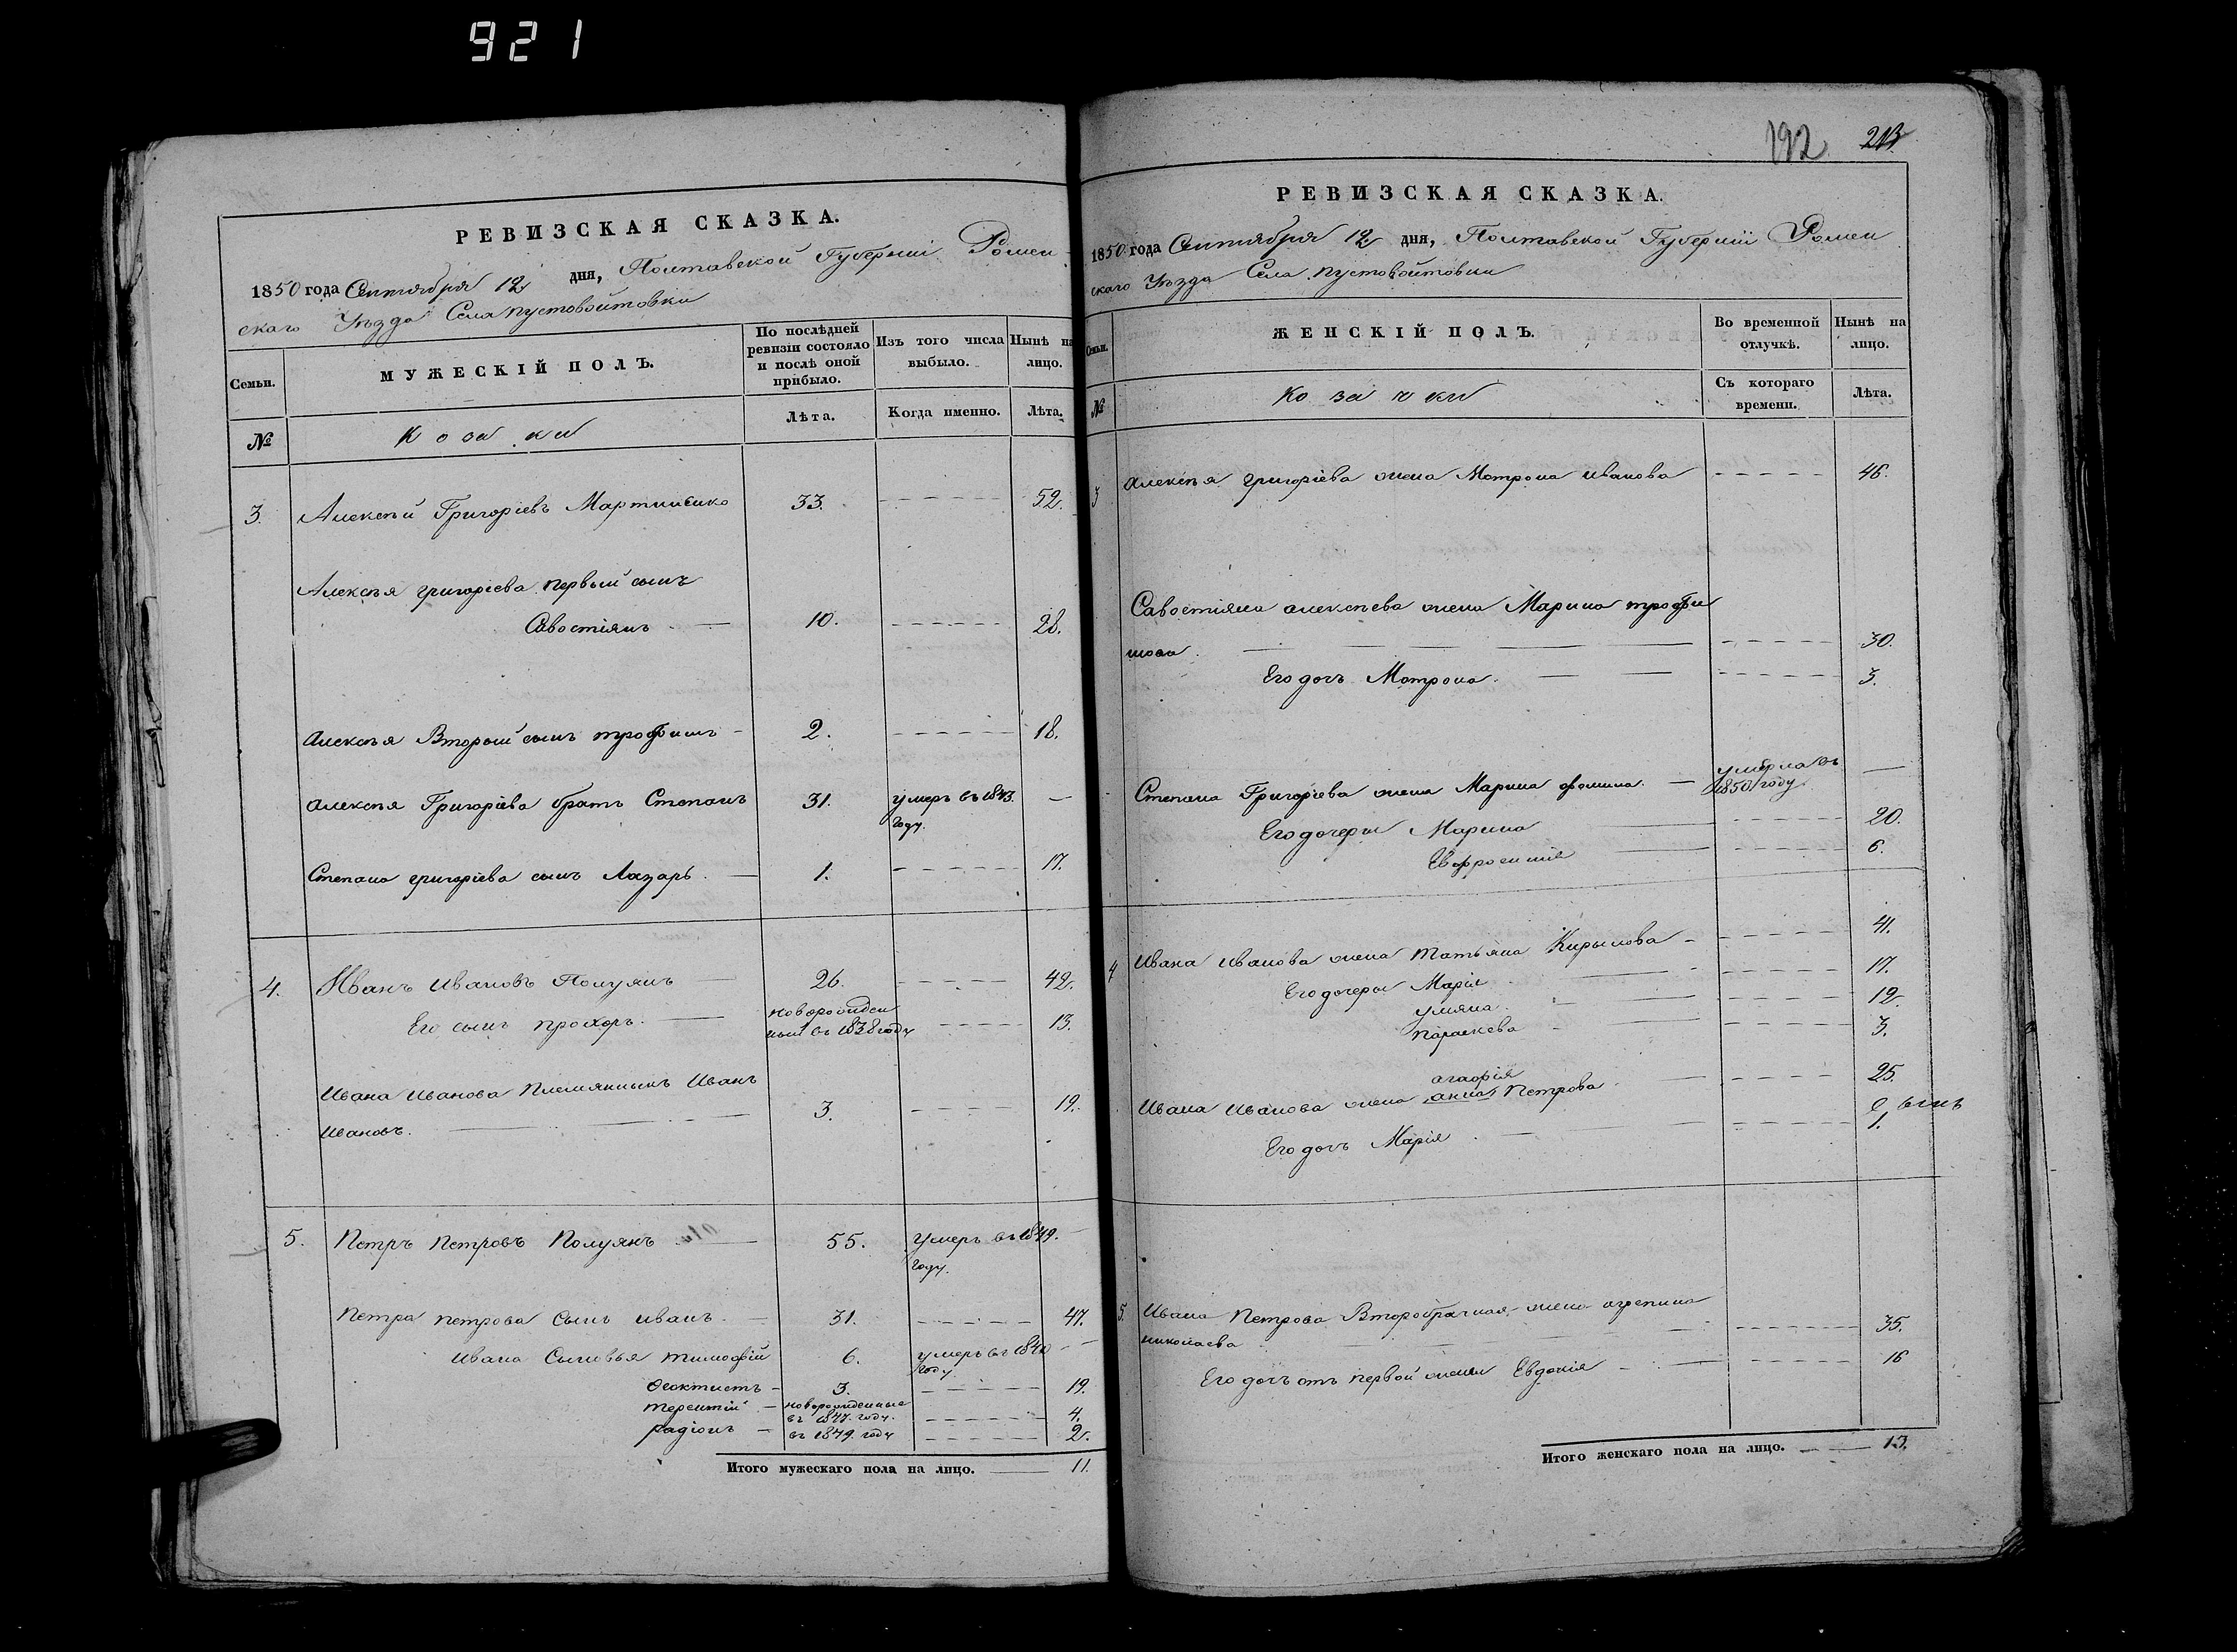 921
РЕВИЗСКАЯ СКАЗКА.
1850 года Сентября 12 дня, Полтавской Губерніи Ромен
скаго Уѣзда Села пустовойтовки
Семьи.
МУЖЕСКІЙ ПОЛЪ.
По послѣдней ревизіи состояло и послѣ оной прибыло.
Изъ того числа выбыло.
Нынѣ на лицо.
№
Козаки
Лѣта.
Когда именно.
Лѣта.
3. Алексѣй Григоріевъ Мартиненко 33. 52.
Алексѣя григоріева первый сынъ
Савостіянъ 10. 28.
Алексѣя Вторый сынъ трофимъ 2. 18.
Алексѣя Григоріева братъ Степанъ 31. умеръ въ 1843.
году.
Степана григоріева сынъ Лазарь. 1. 17.
4. Иванъ Ивановъ Полуянъ 26. 42.
Его сынъ прохоръ. новорожден
ный въ 1838 году 13.
Ивана Иванова Племянныкъ Иванъ
Ивановъ. 3. 19.
5. Петръ Петровъ Полуянъ 55. Умеръ въ 1849.
году.
Петра петрова Сынъ иванъ. 31. 47.
Ивана Сыновья тимофій 6. умеръ въ 1840
году.
Феоктистъ 3. 19.
терентій новорожденные
въ 1847. году. 4.
радіонъ въ 1849. году 2.
Итого мужескаго пола на лицо. 11.
192 213
РЕВИЗСКАЯ СКАЗКА.
1850 года Сентября 12 дня, Полтавской Губерніи Ромен
скаго Уѣзда Села пустовойтовки
Семьи.
ЖЕНСКІЙ ПОЛЪ.
Во временной отлучкѣ.
Нынѣ на лицо.
№
Козачки
Съ котораго времени.
Лѣта.
3 Алексѣя григоріева жена Матрона иванова 46.
Савостіяна алексѣева жена Марина трофи
мова. 30.
Его дочъ Матрона. 3.
Степана Григоріева жена Марина фомина. умерла въ
1850 году
Его дочеры Марина 20.
Евфросинія 6.
4 Ивана иванова жена татьяна Кирылова 41.
Его дочеры Марія 17.
уляна. 12.
параскева 3.
агафія
Ивана Иванова жена анна Петрова 25.
Его дочъ Марія 1.
5. Ивана Петрова Второбрачная жена агрепина
николаева 35.
Его дочъ отъ первой жены Евдокія 16
Итого женскаго пола на лицо. 13.